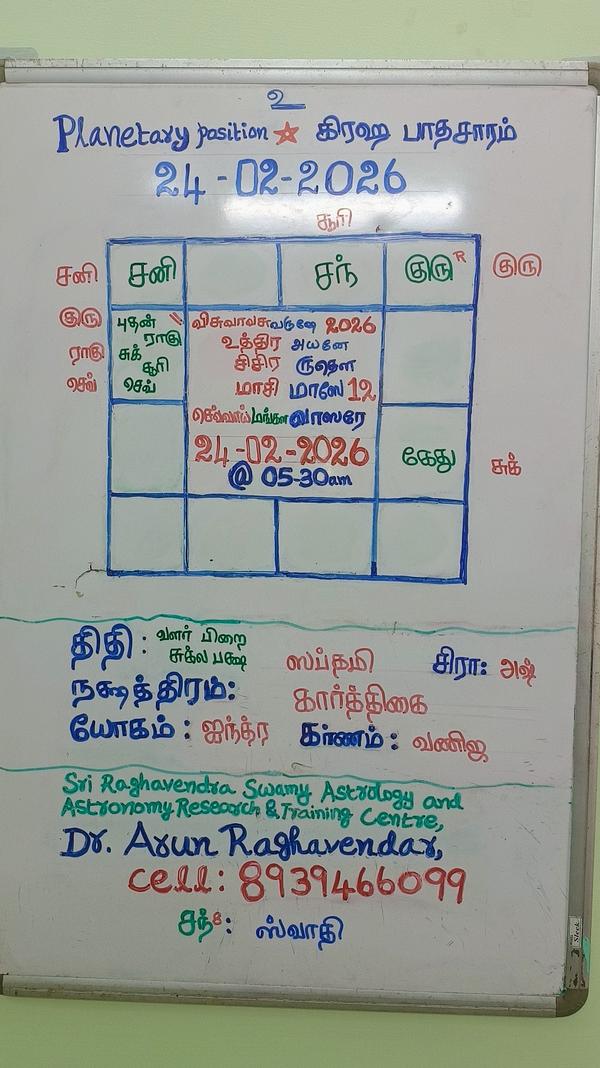 உ
Planetary position கிரஹ பாதசாரம்
24-02-2026
சூரி
சனி சனி சந் குரு R குரு
குரு
ராகு
செவ்
புதன்
ராகு
சுக்
சூரி
செவ்
விசுவாவசுவருஷே 2026
உத்திர அயனே
சிசிர ருதௌ
மாசி மாஸே 12
செவ்வாய் மங்கள வாஸரே
24-02-2026
@ 05-30am
கேது சுக்
திதி : வளர் பிறை
சுக்ல பக்ஷ ஸப்தமி சிரா: அஷ்
நக்ஷத்திரம்: கார்த்திகை
யோகம் : ஐந்த்ர கர்ணம் : வணிஜ
Sri Raghavendra Swamy Astrology and
Astronomy Research & Training Centre,
Dr. Arun Raghavendar,
cell : 8939466099
சந் 8 : ஸ்வாதி